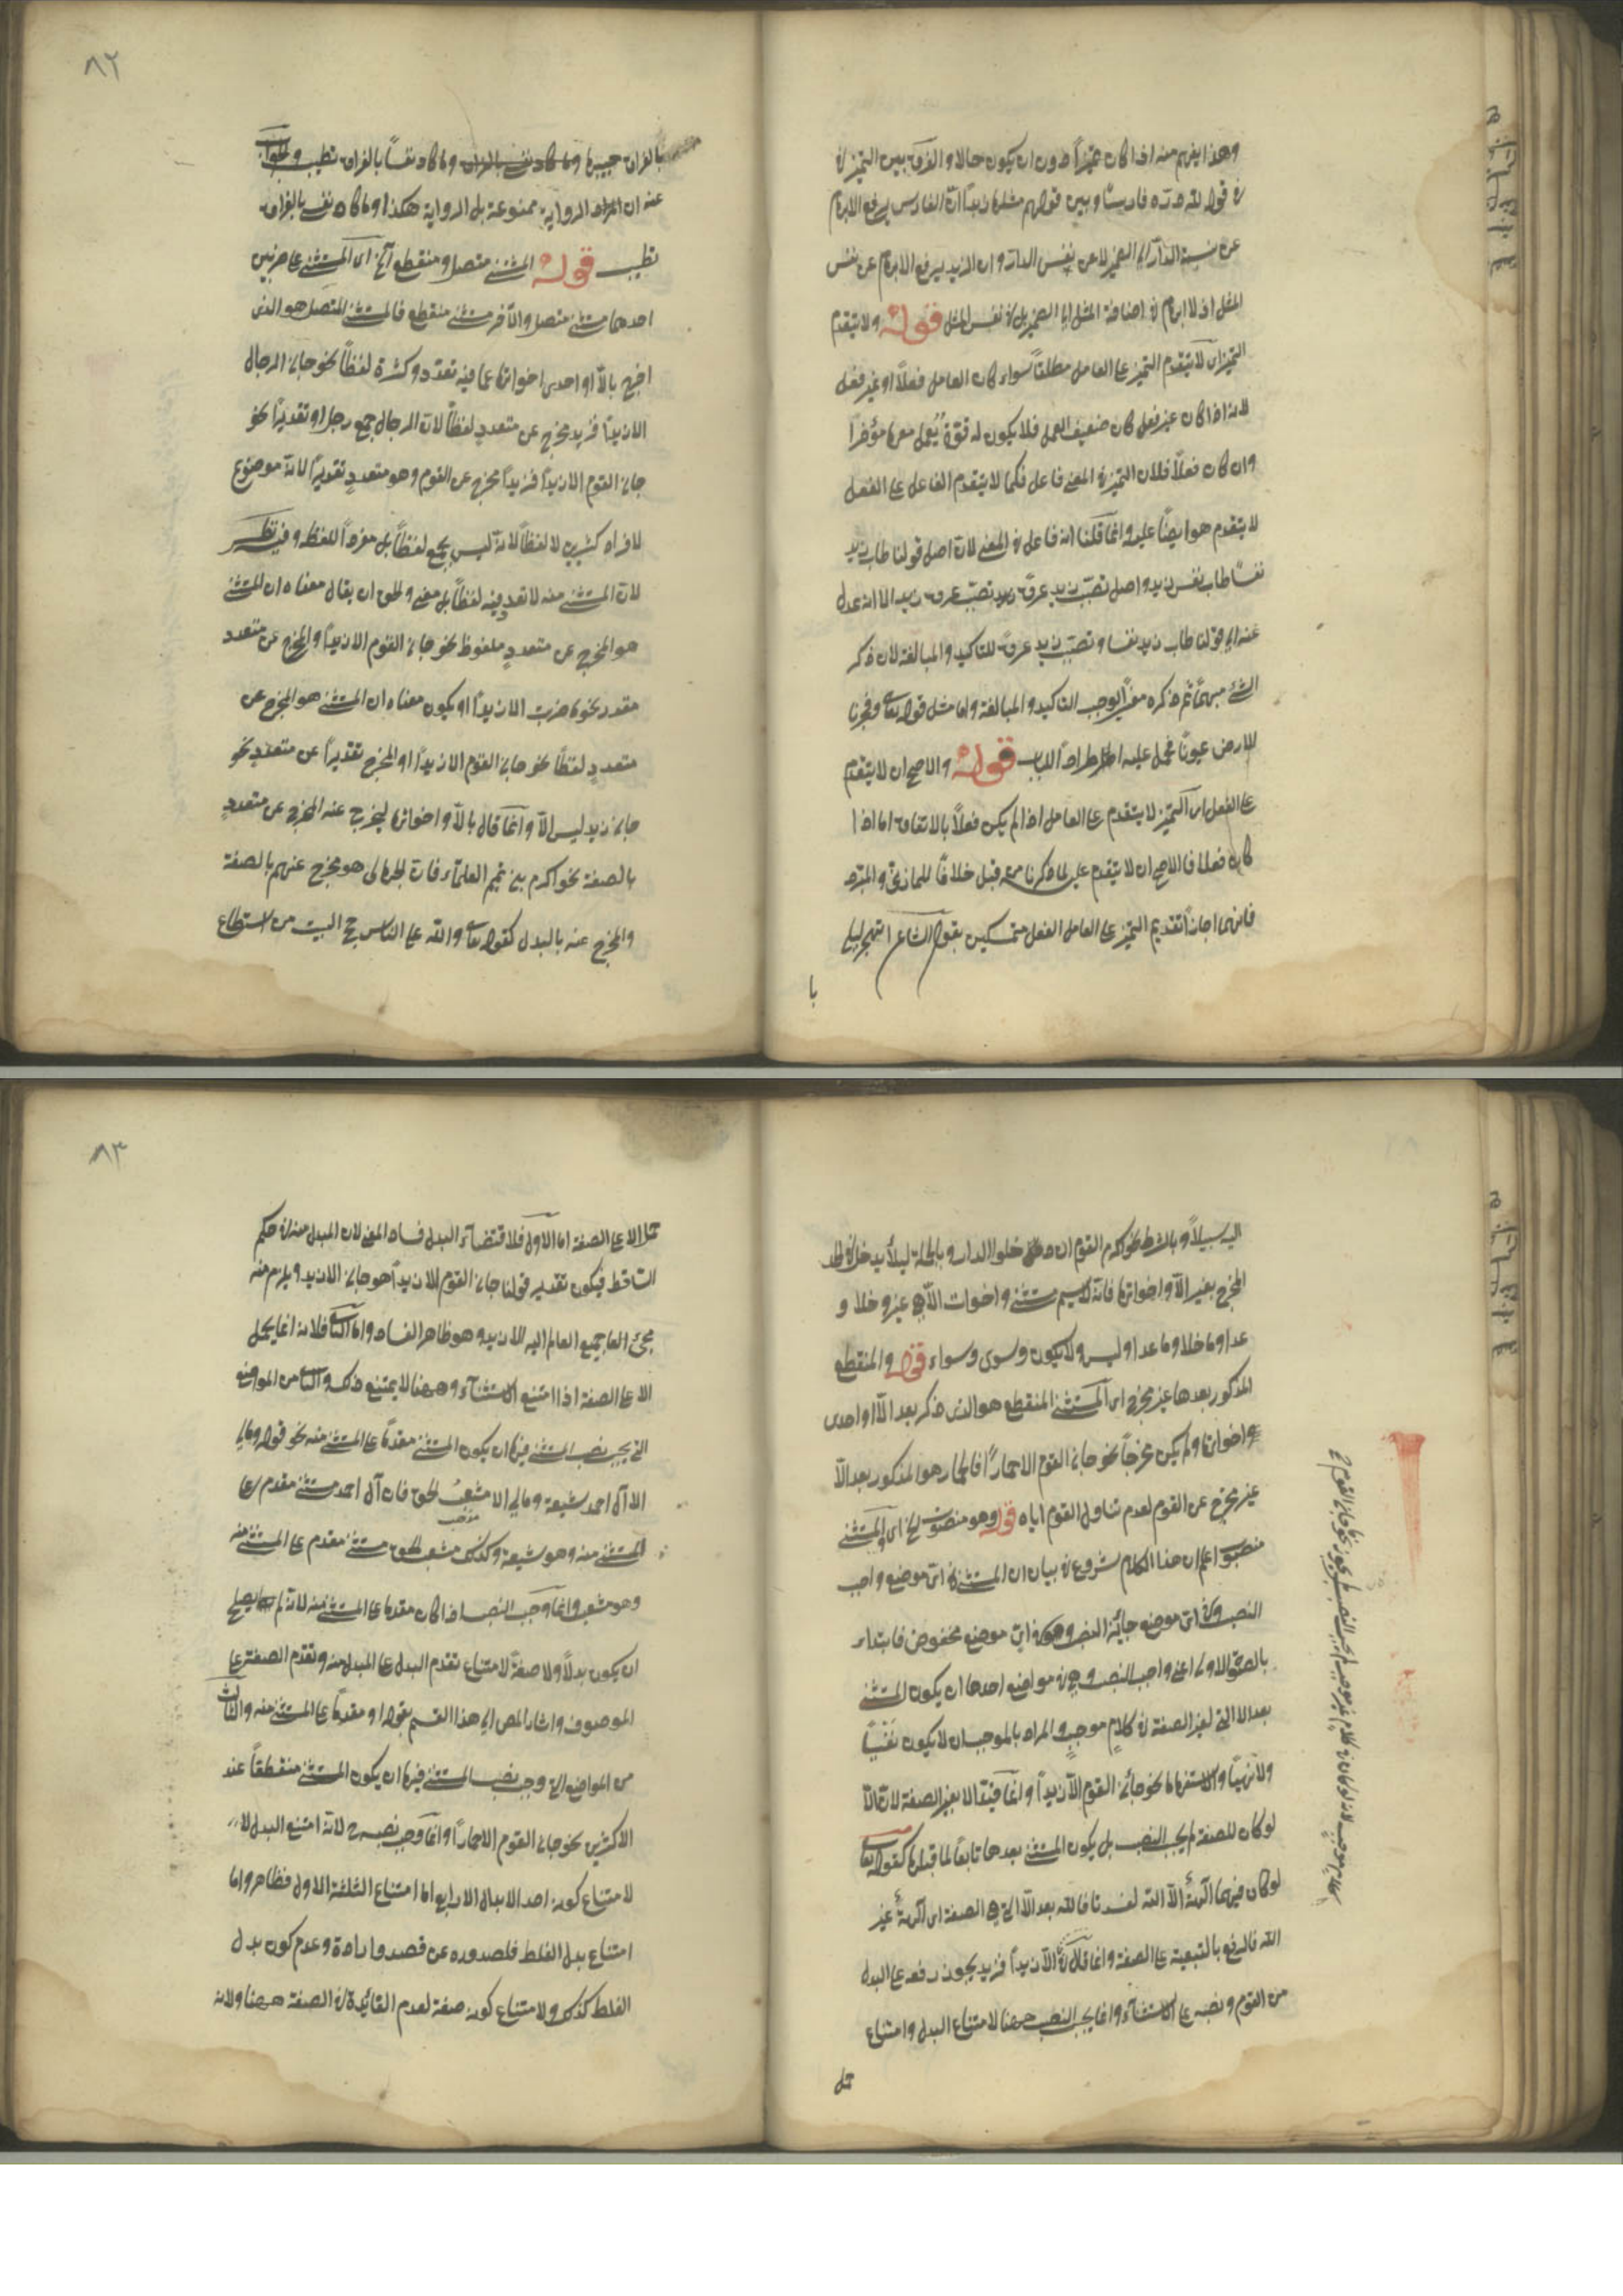 وهذا يفهم منه اذا كان تميزاً دون ان يكون حالا والفرق بين التميز في
في قوله لله دره فارسًا وبين قولهم مثلها زبداً ان الفارس يرفع الابهام
عن نسبة الدر الى الضمير لا عن نفس الدر وان الزبد يرفع الابهام عن نفس
المثل اذ لا ابهام في اضافة المثل الى الضمير بل في نفس المثل قوله ولا يتقدم
التميز اى لا يتقدم التميز على العامل مطلقاً سواء كان العامل فعلاً او غير فعل
لانه اذا كان غير فعل كان ضعيف العمل فلا يكون له قوة يعمل معها مؤخراً
وان كان فعلاً فلان التميز في المعنى فاعل فكما لا يتقدم الفاعل على الفعل
لا يتقدم هو ايضاً عليه وانما قلنا انه فاعل في المعنى لان اصل قولنا طاب زيد
نفساً طاب نفس زيد واصل تصبب زيد عرق تصبب عرق زيد الا انه عدل
عنه الى قولنا طاب زيد نفسا وتصبب زيد عرق للتاكيد والمبالغة لان ذكر
الشئ مبهماً ثم ذكره مفسراً يوجب التاكيد والمبالغة واما مثل قوله تعالى وفجرنا
الارض عيوناً فحمل عليه اطراداً للباب قوله والاصح ان لا يتقدم
على الفعل اى التميز لا يتقدم على العامل اذا لم يكن فعلاً بالاتفاق اما اذا
كان فعلا فالاصح ان لا يتقدم عليه لما ذكرنا من قبل خلافاً للمازني والمبرد
فانهما اجازا تقديم التميز على العامل الفعل متمسكين بقول الشاعر اتهجر ليلى
با
٨٢
بالفراق حبيبها وما كاد نفس بالفراق وما كاد نفساً بالفراق تطيب والجواب
عنه ان الرواية ممنوعة بل الرواية هكذا وما كاد نفسى بالفراق
تطيب قوله المستثنى متصل ومنقطع آه اى المستثنى على ضربين
احدهما مستثنى متصل والآخر مستثنى منقطع فالمستثنى المتصل هو الذى
اخرج بالا او احدى اخواتها عما فيه تعدد وكثرة لفظاً نحو جاءنى الرجال
الا زيداً فزيد مخرج عن متعددٍ لفظاً لان الرجال جمع رجل او تقديراً نحو
جاءنى القوم الا زيداً فزيداً مخرج عن القوم وهو متعددٍ تقديراً لانه موضوع
لافراد كثيرين لا لفظاً لانه ليس بجمع لفظاً بل مفرداً للفظ وفيه نظر
لان المستثنى منه لا تعدد فيه لفظاً بل معنى والحق ان يقال معناه ان المستثنى
هو المخرج عن متعددٍ ملفوظ نحو جاءنى القوم الا زيداً والمخرج عن متعدد
مقدر نحو ما ضربت الا زيداً او يكون معناه ان المستثنى هو المخرج عن
متعددٍ لفظاً نحو جاءنى القوم الا زيداً او المخرج تقديراً عن متعددٍ نحو
جاءنى زيد ليس الاّ وانما قال بالاّ واخواتها ليخرج عنه المخرج عن متعددٍ
بالصفة نحو اكرم بنى تميم العلماء فان الجهال هو مخرج عنهم بالصفة
والمخرج عنه بالبدل كقوله تعالى ولله على الناس حج البيت من استطاع
اليه سبيلاً وبالشرط نحو اكرم القوم ان دخلوا الدار وبالجملة ليلا يدخل فى الحد
المخرج بغير الاّ واخواتها فانه لا يسمى مستثنى واخوات الاّ هى غير وخلا و
عدا وما خلا وما عدا وليس ولا يكون وسوى وسواء قوله والمنقطع
المذكور بعدها غير مخرج اى المستثنى المنقطع هو الذى ذكر بعد الاّ او احدى
واخواتها ولم يكن مخرجاً نحو جاءنى القوم الا حماراً فالحمار هو المذكور بعد الاّ
غير مخرج عن القوم لعدم تناول القوم اياه قوله وهو منصوب الخ اى المستثنى
منصوب اعلم ان هذا الكلام شروع فى بيان ان المستثنى فى اى موضع واجب
النصب وفى اى موضع جائز النصب وفى اى موضع مخفوض فابتداء
بالاول اعنى واجب النصب وهى فى مواضع احدها ان يكون المستثنى
بعد الا التى لغير الصفة فى كلامٍ موجبٍ والمراد بالموجب ان لا يكون نفياً
ولا نهياً والاستفهاما نحو جاءنى القوم الاّ زيداً وانما قيد الا بغير الصفة لان الاّ
لو كان للصفة لم يجب النصب بل يكون المستثنى بعدها تابعاً لما قبلها كقوله تعالى
لو كان فيهما آلهةٌ الاّ الله لفسدتا فالله بعد الاّ التى هى الصفة اى آلهةٌ غير
الله فالرفع بالتبعية على الصفة الاّ زيداً فزيد يجوز رفعه على البدل
من القوم ونصبه على الاستثناء وانما يجب النصب ههنا لامتناع البدل وامتناع
٨٣
الا على الصفة اما الاول فلاقتضاء البدل فساد المعنى لان المبدل منه فى حكم
الساقط فيكون تقدير قولنا جاءنى القوم الا زيداً هو جاءنى الا زيد ويلزم منه
مجئ جميع العالم اليه الا زيد وهو ظاهر الفساد واما الثانى فلانه انما يحمل
الا على الصفة اذا امتنع الاستثناء وههنا لا يمتنع ذلك والثانى من المواضع
التى يجب نصب المستثنى فيها ان يكون المستثنى مقدماً على المستثنى منه نحو قوله ومالى
الا آل احمد شيعة ومالى الا مشعب الحق فان آل احمد مستثنى مقدم على
المستثنى منه وهو شيعة وكذلك مشعب الحق مستثنى مقدم على المستثنى منه
وهو مشعب وانما وجب النصب اذا كان مقدما على المستثنى منه لانه لم يصلح
ان يكون بدلاً ولا صفةً لامتناع تقدم البدل على المبدل منه وتقدم الصفة على
الموصوف واشار المص الى هذا القسم بقوله او مقدماً على المستثنى منه والثالث
من المواضع التى وجب نصب المستثنى فيها ان يكون المستثنى منقطعاً عند
الاكثرين نحو جاءنى القوم الا حماراً وانما وجب نصبه ح لانه امتنع البدل
لامتناع كونه احد الابدال الاربع اما امتناع الثلثة الاول فظاهر واما
امتناع بدل الغلط فلصدوره عن قصد وارادة وعدم كون بدل
الغلط كذلك ولامتناع كونه صفة لعدم الفائدة فى الصفة ههنا ولانه